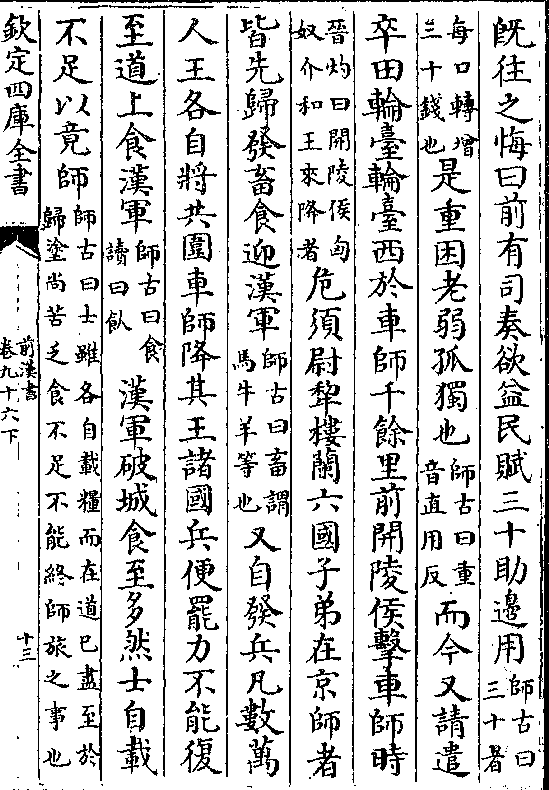 既往之悔曰前有司奏欲益民賦三十助邊用師古曰三十者
每口轉增三十錢也是重困老弱孤獨也師古曰重音直用反而今又請遣
卒田輪臺輪臺西於車師千餘里前開陵侯擊車師時
晉灼曰開陵侯匈奴介和王來降者危須尉犂樓蘭六國子弟在京師者
皆先歸發畜食迎漢軍師古曰畜謂馬牛羊等也又自發兵凡數萬
人王各自將共圍車師降其王諸國兵便罷力不能復
至道上食漢軍師古曰食讀曰飤漢軍破城食至多然士自載
不足以竟師師古曰士雖各自載糧而在道已盡至於歸塗尚苦乏食不足不能終師旅之事也
欽定四庫全書
前漢書
卷九十六下
十三